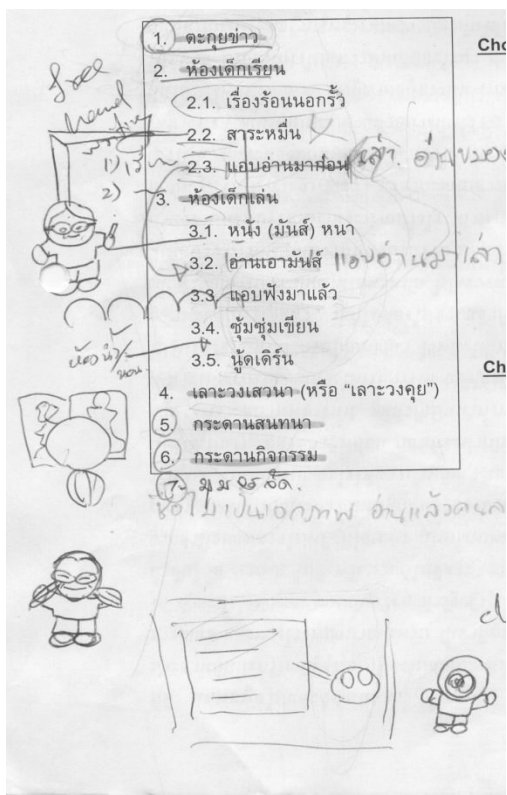 free
hand
1. ตะกุยข่าว
Cho
2. ห้องเด็กเรียน
2.1. เรื่องร้อนนอกรั้ว
2.2. สาระหมื่น
1)
2.3. แอบอ่านมาก่อน เล่า.
2)
3. ห้องเด็กเล่น
3.1. หนัง (มันส์) หนา
3.2. อ่านเอามันส์ แอบอ่านมาเล่า
3.3. แอบฟังมาแล้ว
3.4. ซุ้มซุ่มเขียน
3.5. นู้ดเดิร์น
Ch
4. เลาะวงเสวนา (หรือ “เลาะวงคุย”)
5. กระดานสนทนา
6. กระดานกิจกรรม
7.
ชื่อไม่เป็นเอกภาพ อ่านแล้ว